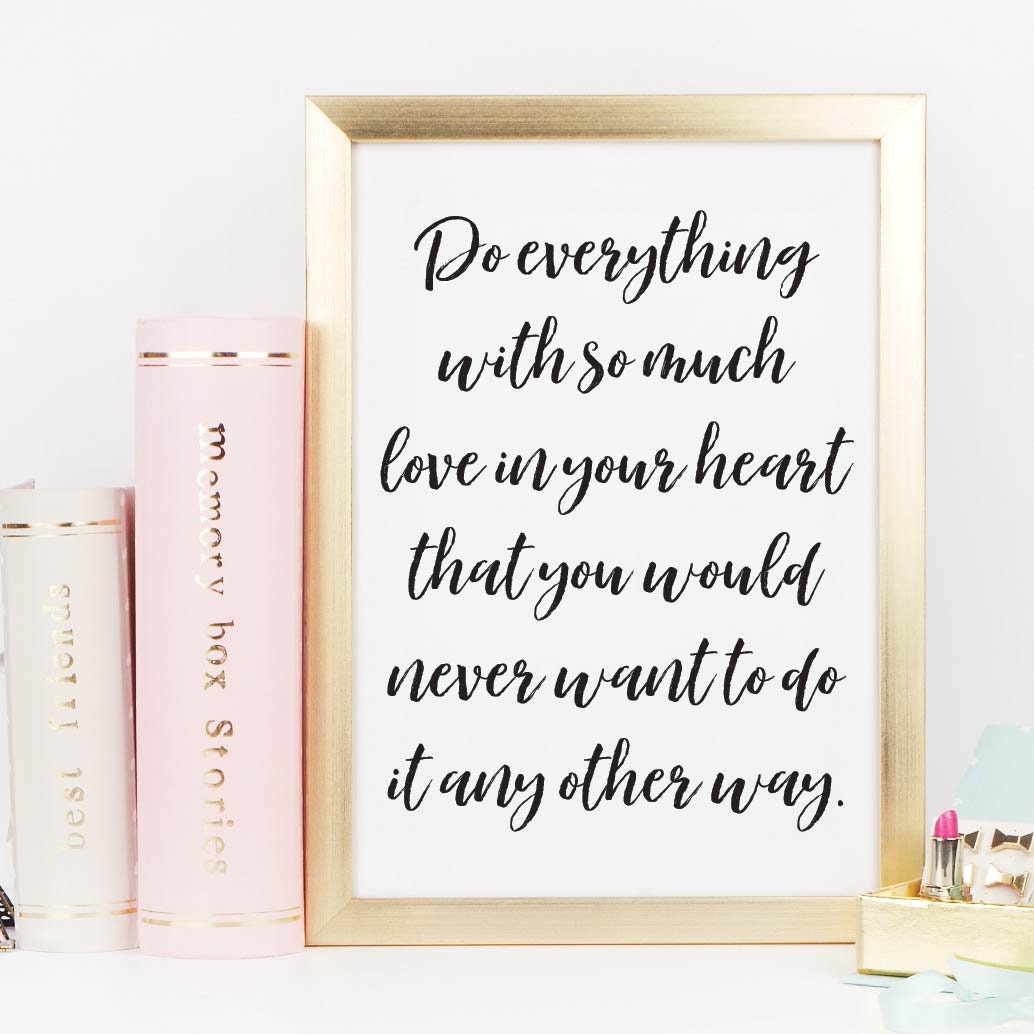 best friends
memory box Stories
Do everything
with so much
love in your heart
that you would
never want to do
it any other way.